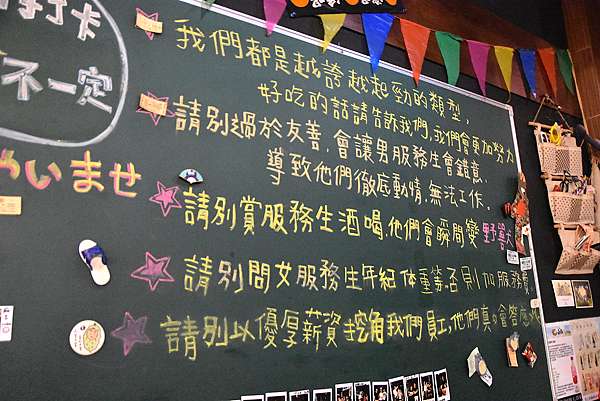 打卡
不一定
やいませ
我們都是越誇越起勁的類型,
好吃的話請告訴我們,我們會更加努力
請別過於友善,會讓男服務生會錯意,
導致他們徹底動情,無法工作.
請別賞服務生酒喝,他們會瞬間變野獸
請別問女服務生年紀体重等否則加服務費
請別以優厚薪資挖角我們員工,他們真會答應